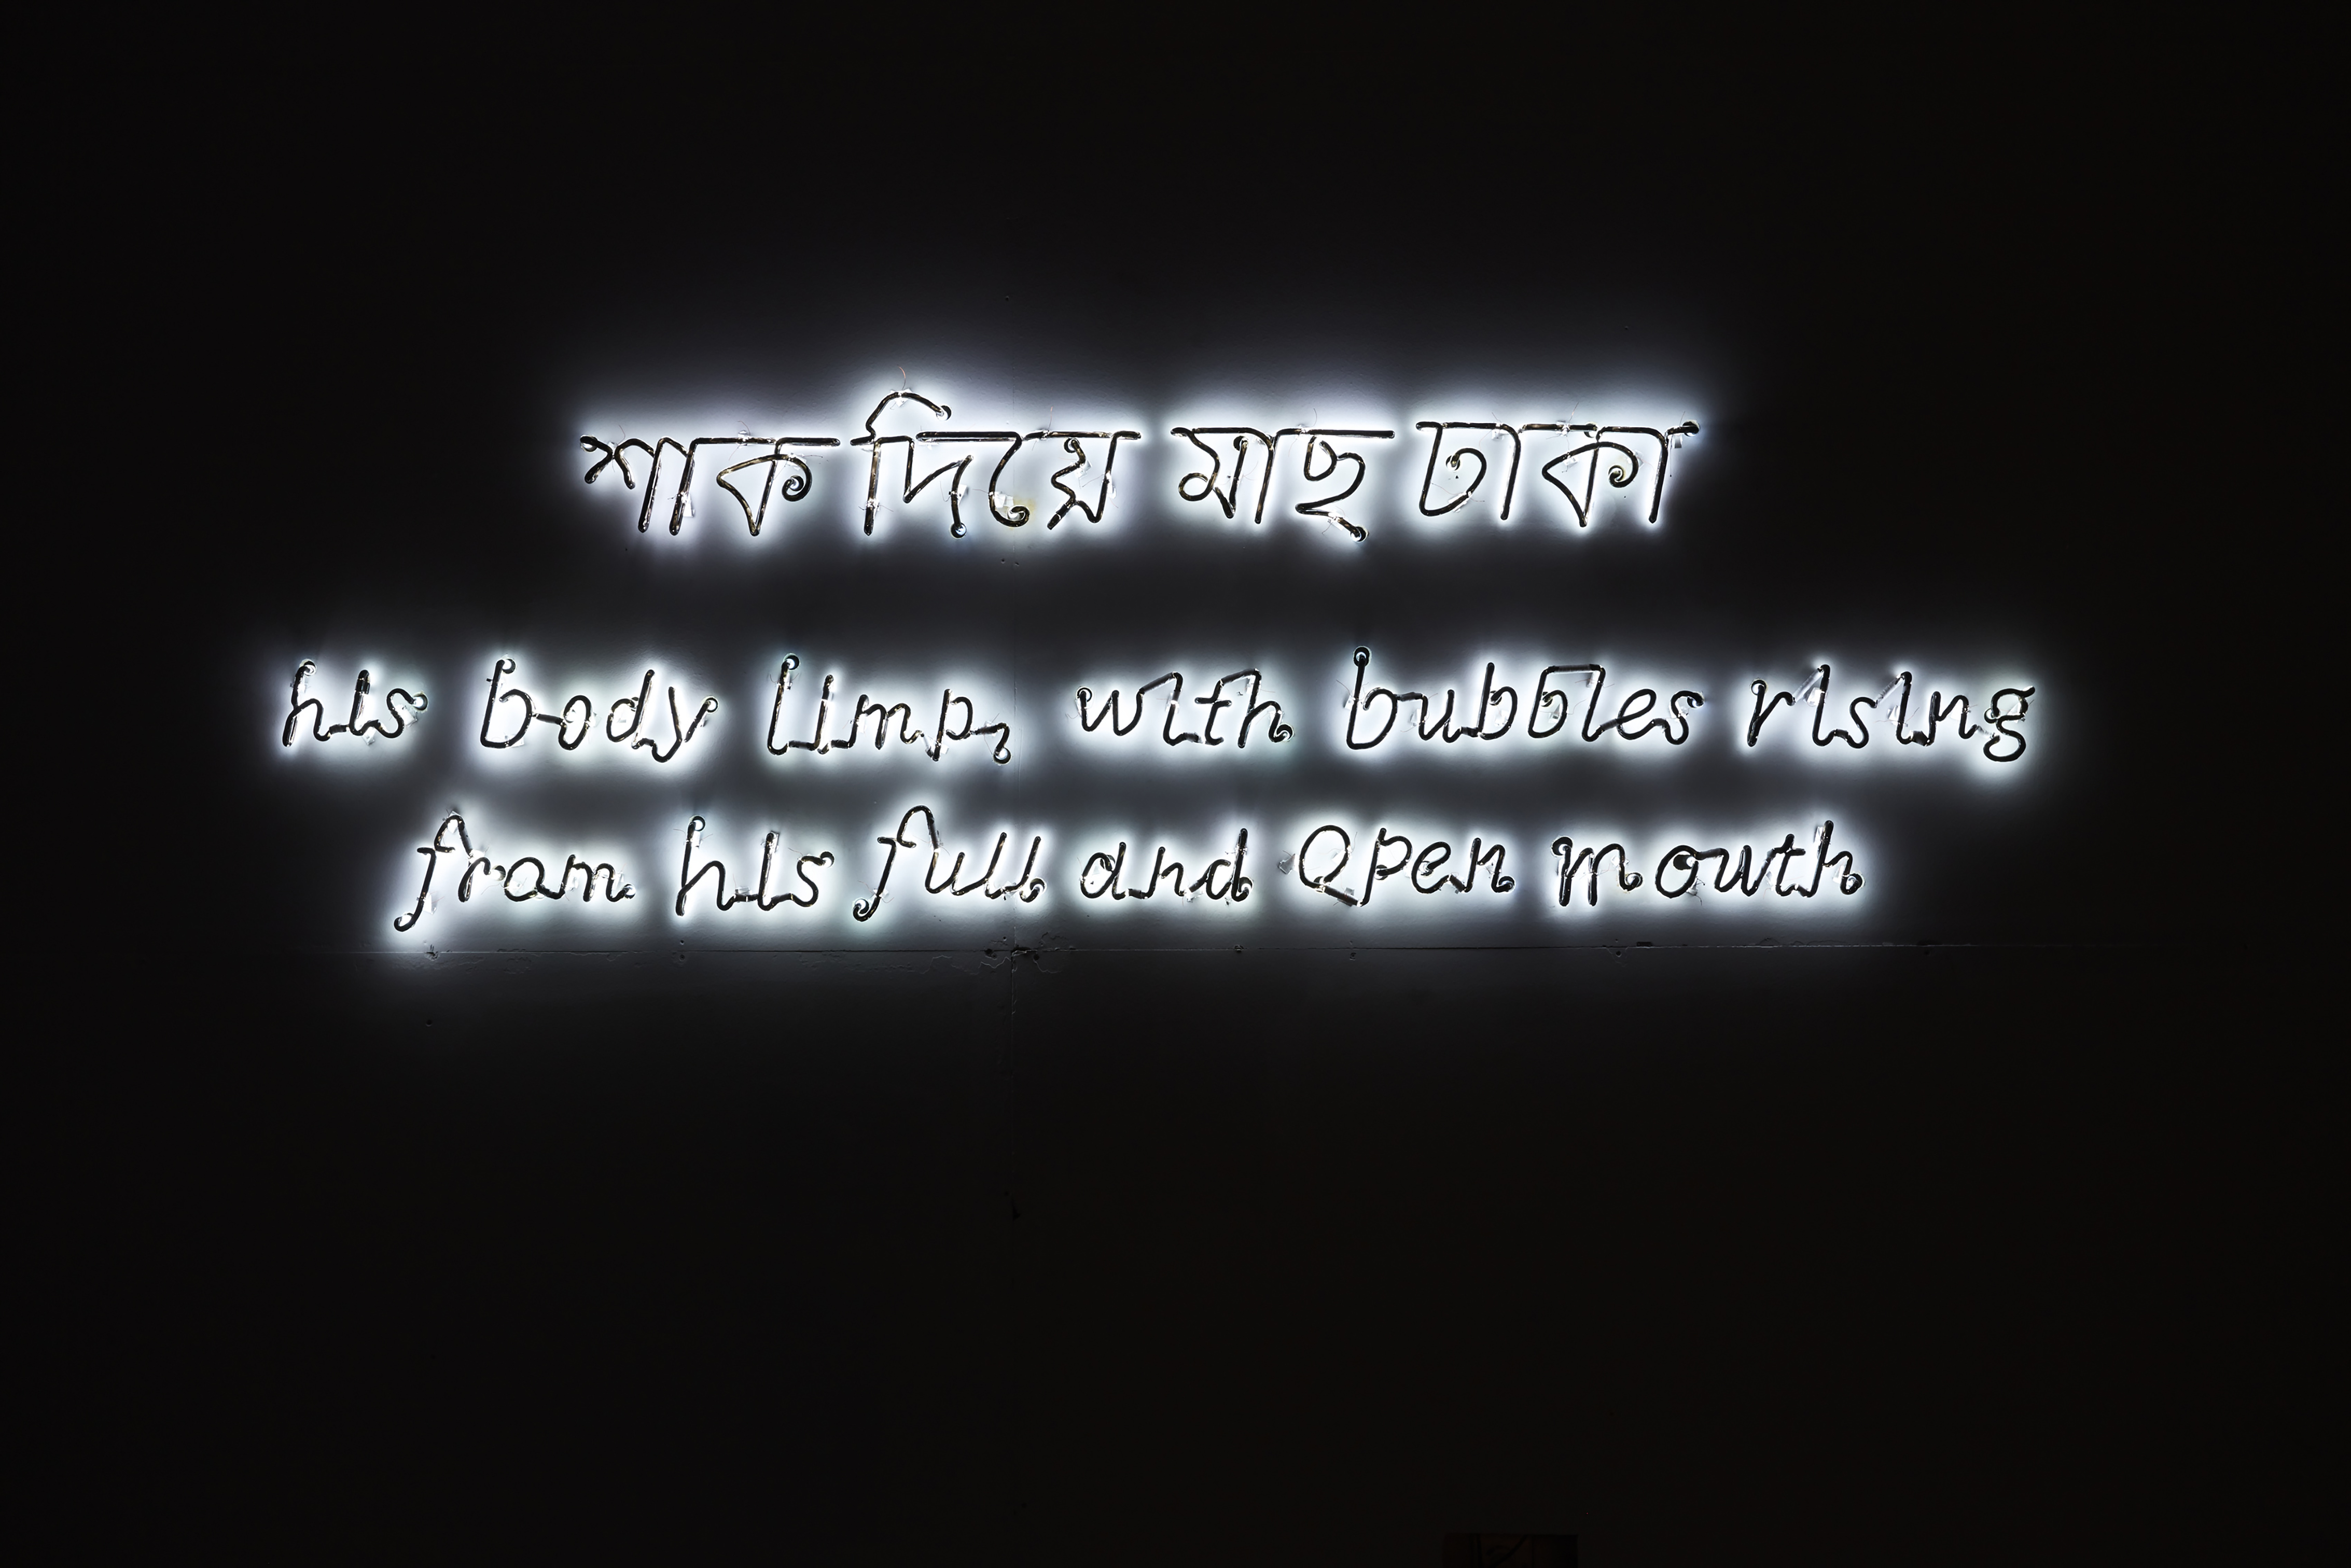 শাক দিয়ে মাছ ঢাকা
his body limp, with bubbles rising
from his full and open mouth